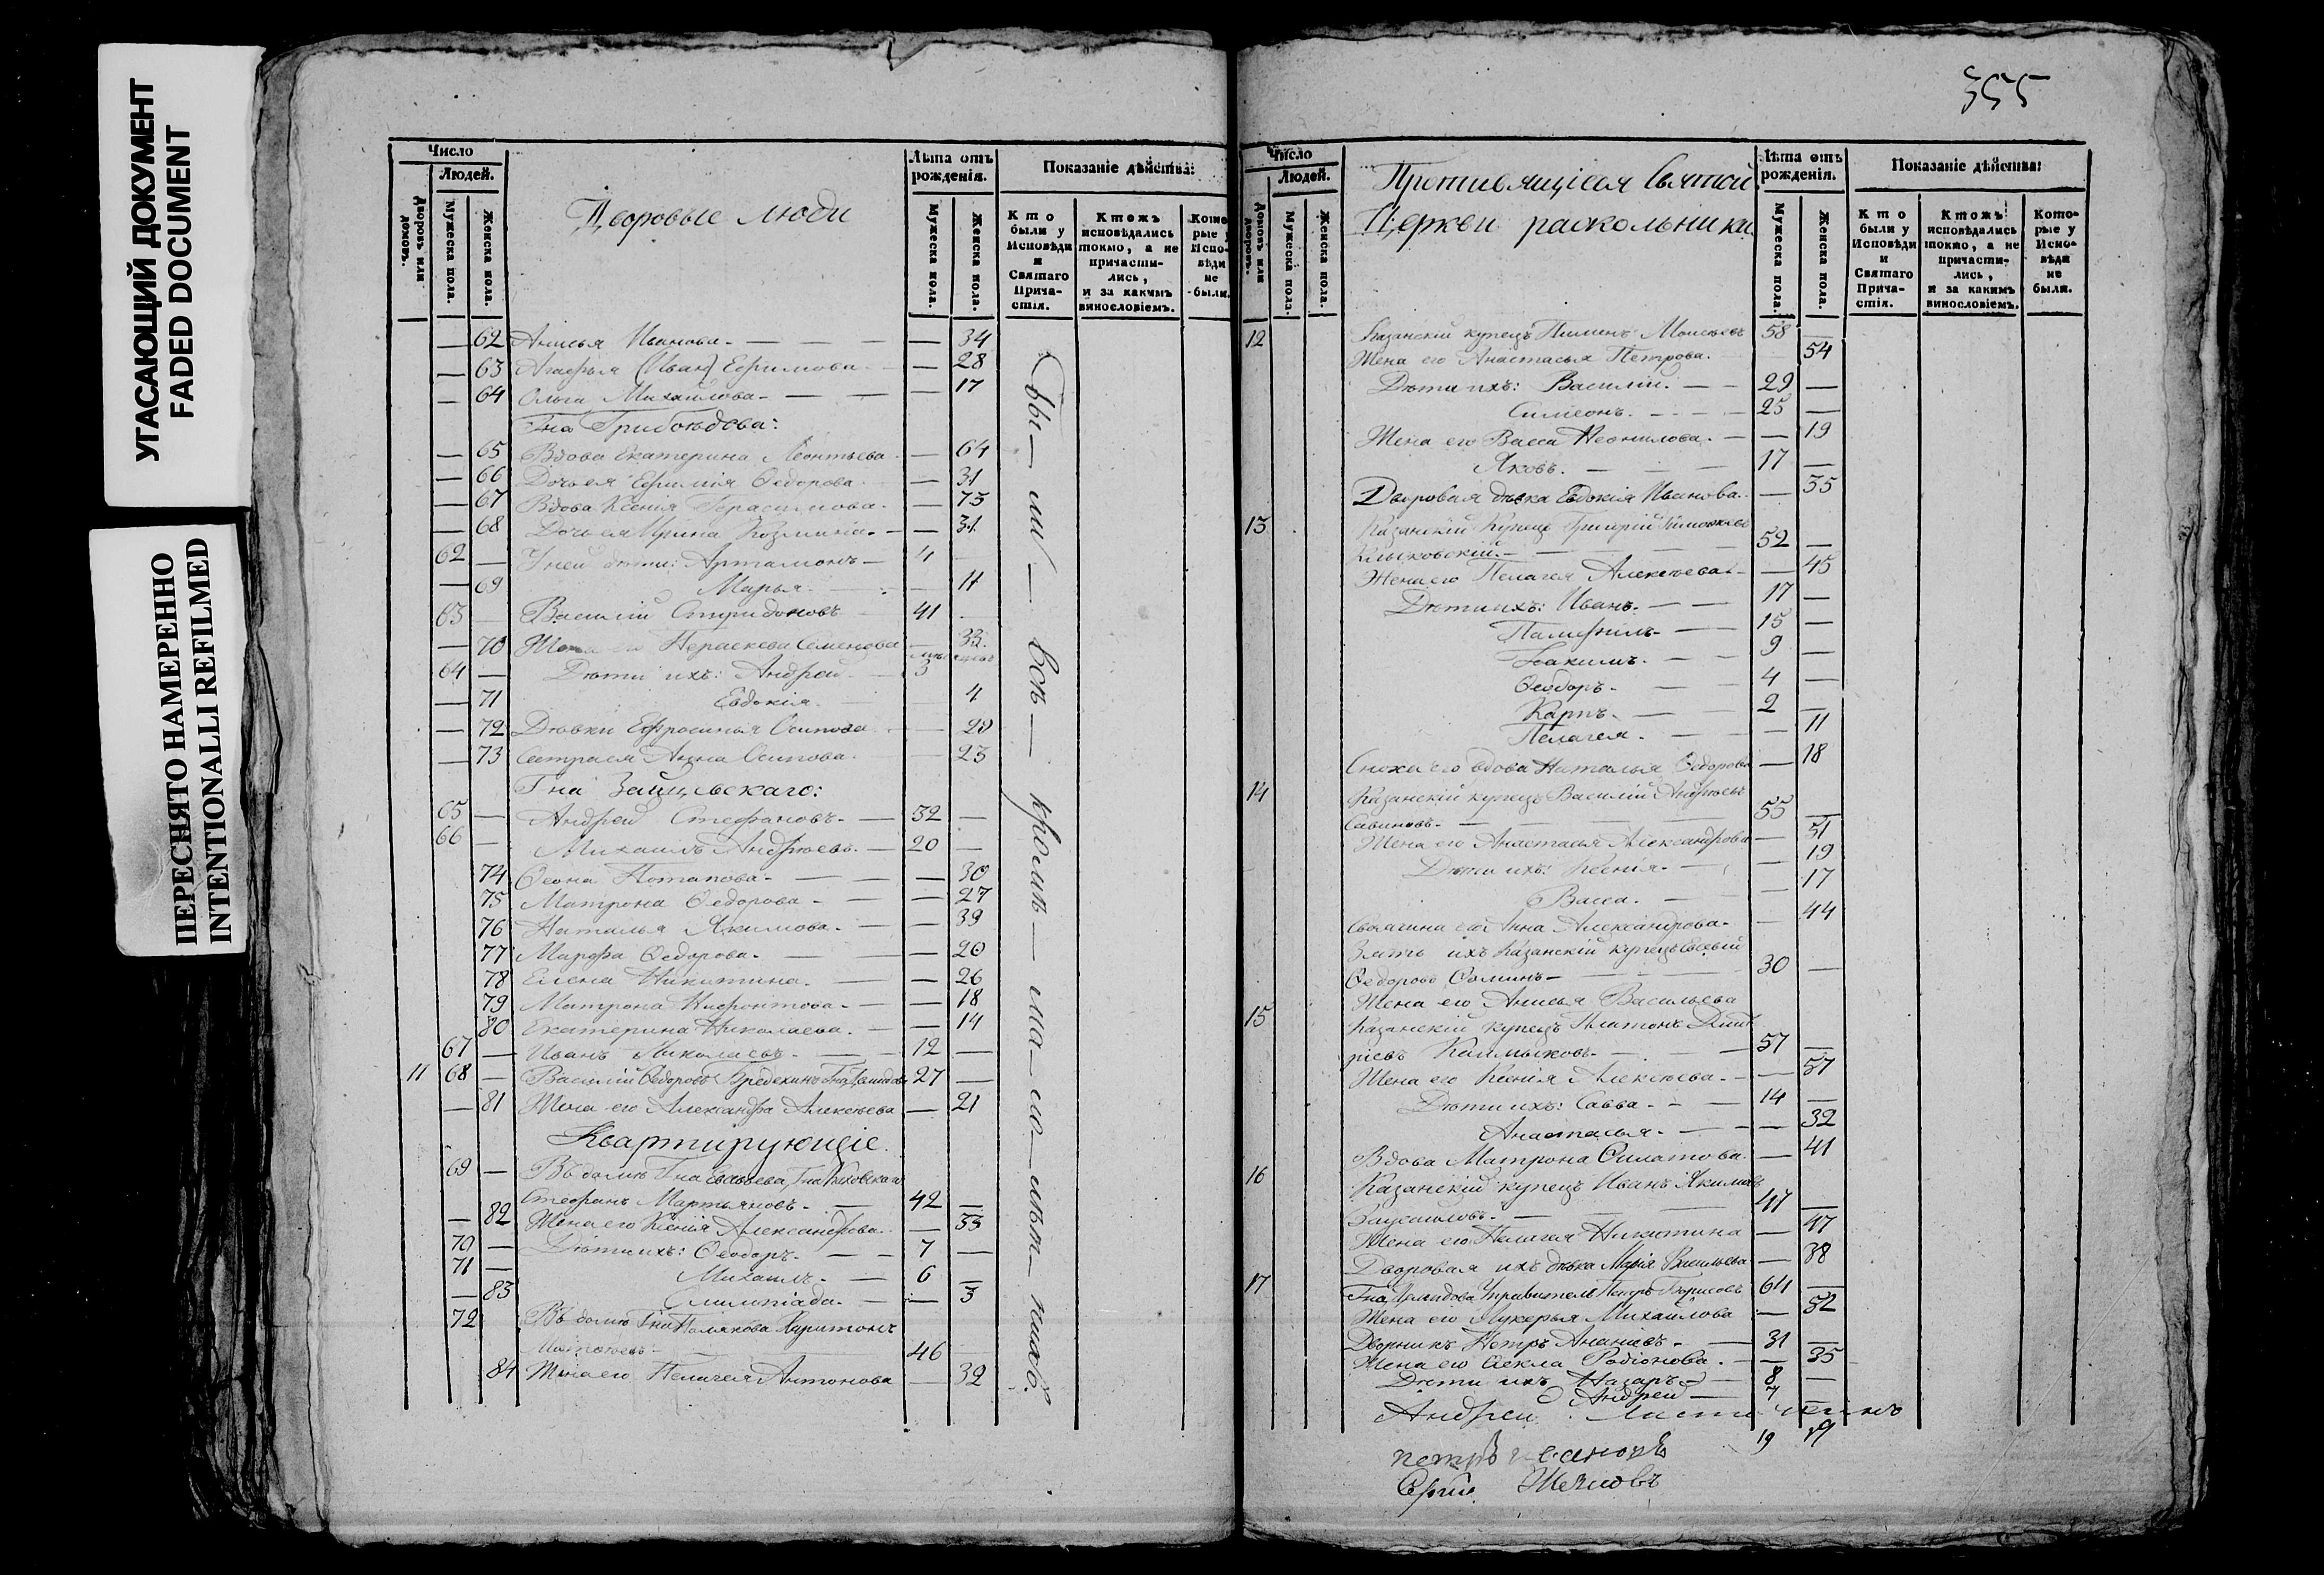 УГАСАЮЩИЙ ДОКУМЕНТ
FADED DOCUMENT
ПЕРЕСНЯТО НАМЕРЕННО
INTENTIONALLI REFILMED
Число Людей. Лѣта отъ рожденія. Показаніе дѣйства:
Дворовъ или домовъ. Мужеска пола. Женска пола. Дворовые люди Мужеска пола. Женска пола. Кто были у Исповѣди и Святаго Прича-стія. Ктожъ исповѣдались токмо, а не причасти-лись, и за какимъ винословіемъ. Кото рые у Испо-вѣди не были.
— 62 Анисья Иванова — — 34
— 63 Агафья (Иван) Ефимова — — 28
— 64 Ольга Михайлова — — 17
Гна Грибоѣдова:
— 65 Вдова Екатерина Леонтьева — 64
— 66 Дочь ея Ефимія Ѳедорова — 31
— 67 Вдова Ксенія Герасимова — 75
— 68 Дочь ея Ирина Козмина — — 31
62 — У ней дѣти: Артамонъ — 4
— 69 Марья — 11
63 — Василій Спиридоновъ 41
— 70 Жена его Параскева Семенова — 33
64 — Дѣти ихъ: Андрей 3 мѣсяцовъ
— 71 Евдокія 4
— 72 Дѣвки Ефросинья Осипова — 20
— 73 Сестра ея Анна Осипова 23
Гна
65 — Андрей Стефановъ — 32 —
66 — Михаилъ Андреевъ — 20 —
74 Потапова — — 30
75 Матрона Ѳедорова — — 27
76 Наталья Якимова — — 39
77 Марфа Ѳедорова — — 20
78 Елена Никитина — — 26
79 Матрона — — 18
80 Екатерина Николаева — — 14
67 — Иванъ Николаевъ — 12 —
11 68 — Василій Ѳедоровъ 27 —
— 81 Жена его Александра Алексѣева — 21
Квартирующіе.
69 — Въ домѣ Гна
Стефанъ Мартьяновъ — 42 —
— 82 Жена его Ксенія Александрова — 33
70 — Дѣти ихъ: Ѳеодоръ — — 7 —
71 — Михаилъ — 6 —
— 83 Олимпіада — — 3
72 Въ домѣ Гна Полякова Харитонъ
46
84 Жена его Пелагея Антонова — 32
355
Число Людей. Противящіеся Святой Лѣта отъ рожденія. Показаніе дѣйства:
Домовъ или дворовъ. Мужеска пола. Женска пола. Церкви раскольники Мужеска пола. Женска пола. Кто были у Исповѣди и Святаго Прича-стія. Ктожъ исповѣдались токмо, а не причасти-лись, и за какимъ винословіемъ. Кото-рые у Испо-вѣди не были.
12 Казанскій купецъ Пименъ Моисеевъ 58 —
Жена его Анастасья Петрова. 54
Дѣти ихъ: Василій. — — 29 —
Симеонъ. — — 25 —
Жена его Васса Неонилова. — — 19
Яковъ. — — 17 —
Дворовая дѣвка Евдокія Иванова. — 35
13 Казанскій Купецъ Григорій Тимоѳеевъ
52 —
Жена его Пелагея Алексѣева — — 45
Дѣти ихъ: Иванъ. — — 17 —
Памфилъ — 15 —
Іоакимъ. — 9 —
Ѳеодоръ. — 4 —
Карпъ. — — 2 —
Пелагея. — — 11
Сноха его вдова Наталья Ѳедорова — 18
14 Казанскій купецъ Василій Андреевъ
Савиновъ — 55 —
Жена его Анастасья Александрова — 51
Дѣти ихъ: Ксенія. — — 19
Васса. — — 17
его Анна Александрова — — 44
Зять ихъ Казанскій купецъ Евсевій
Ѳедоровъ Ѳоминъ — 30 —
Жена его Анисья Васильева
15 Казанскій купецъ Платонъ Дмит
ріевъ Калмыковъ — 57 —
Жена его Ксенія Алексѣева — — 57
Дѣти ихъ: Савва — — 14 —
Анастасья — — 32
Вдова Матрона Филатова — 41
16 Казанскій купецъ Иванъ Якимовъ
47 —
Жена его Пелагея Никитина — 47
Дворовая ихъ дѣвка Марія Васильева — 38
17 Управитель Петръ Борисовъ 64 —
Жена его Лукерья Михайлова — 52
Дворникъ Петръ Ананьевъ — 31 —
Жена его Ѳекла Родіонова. — — 35
Дѣти ихъ Назаръ — 8 —
Андрей — 7 —
Андрей
19 19
петръ
Сергій